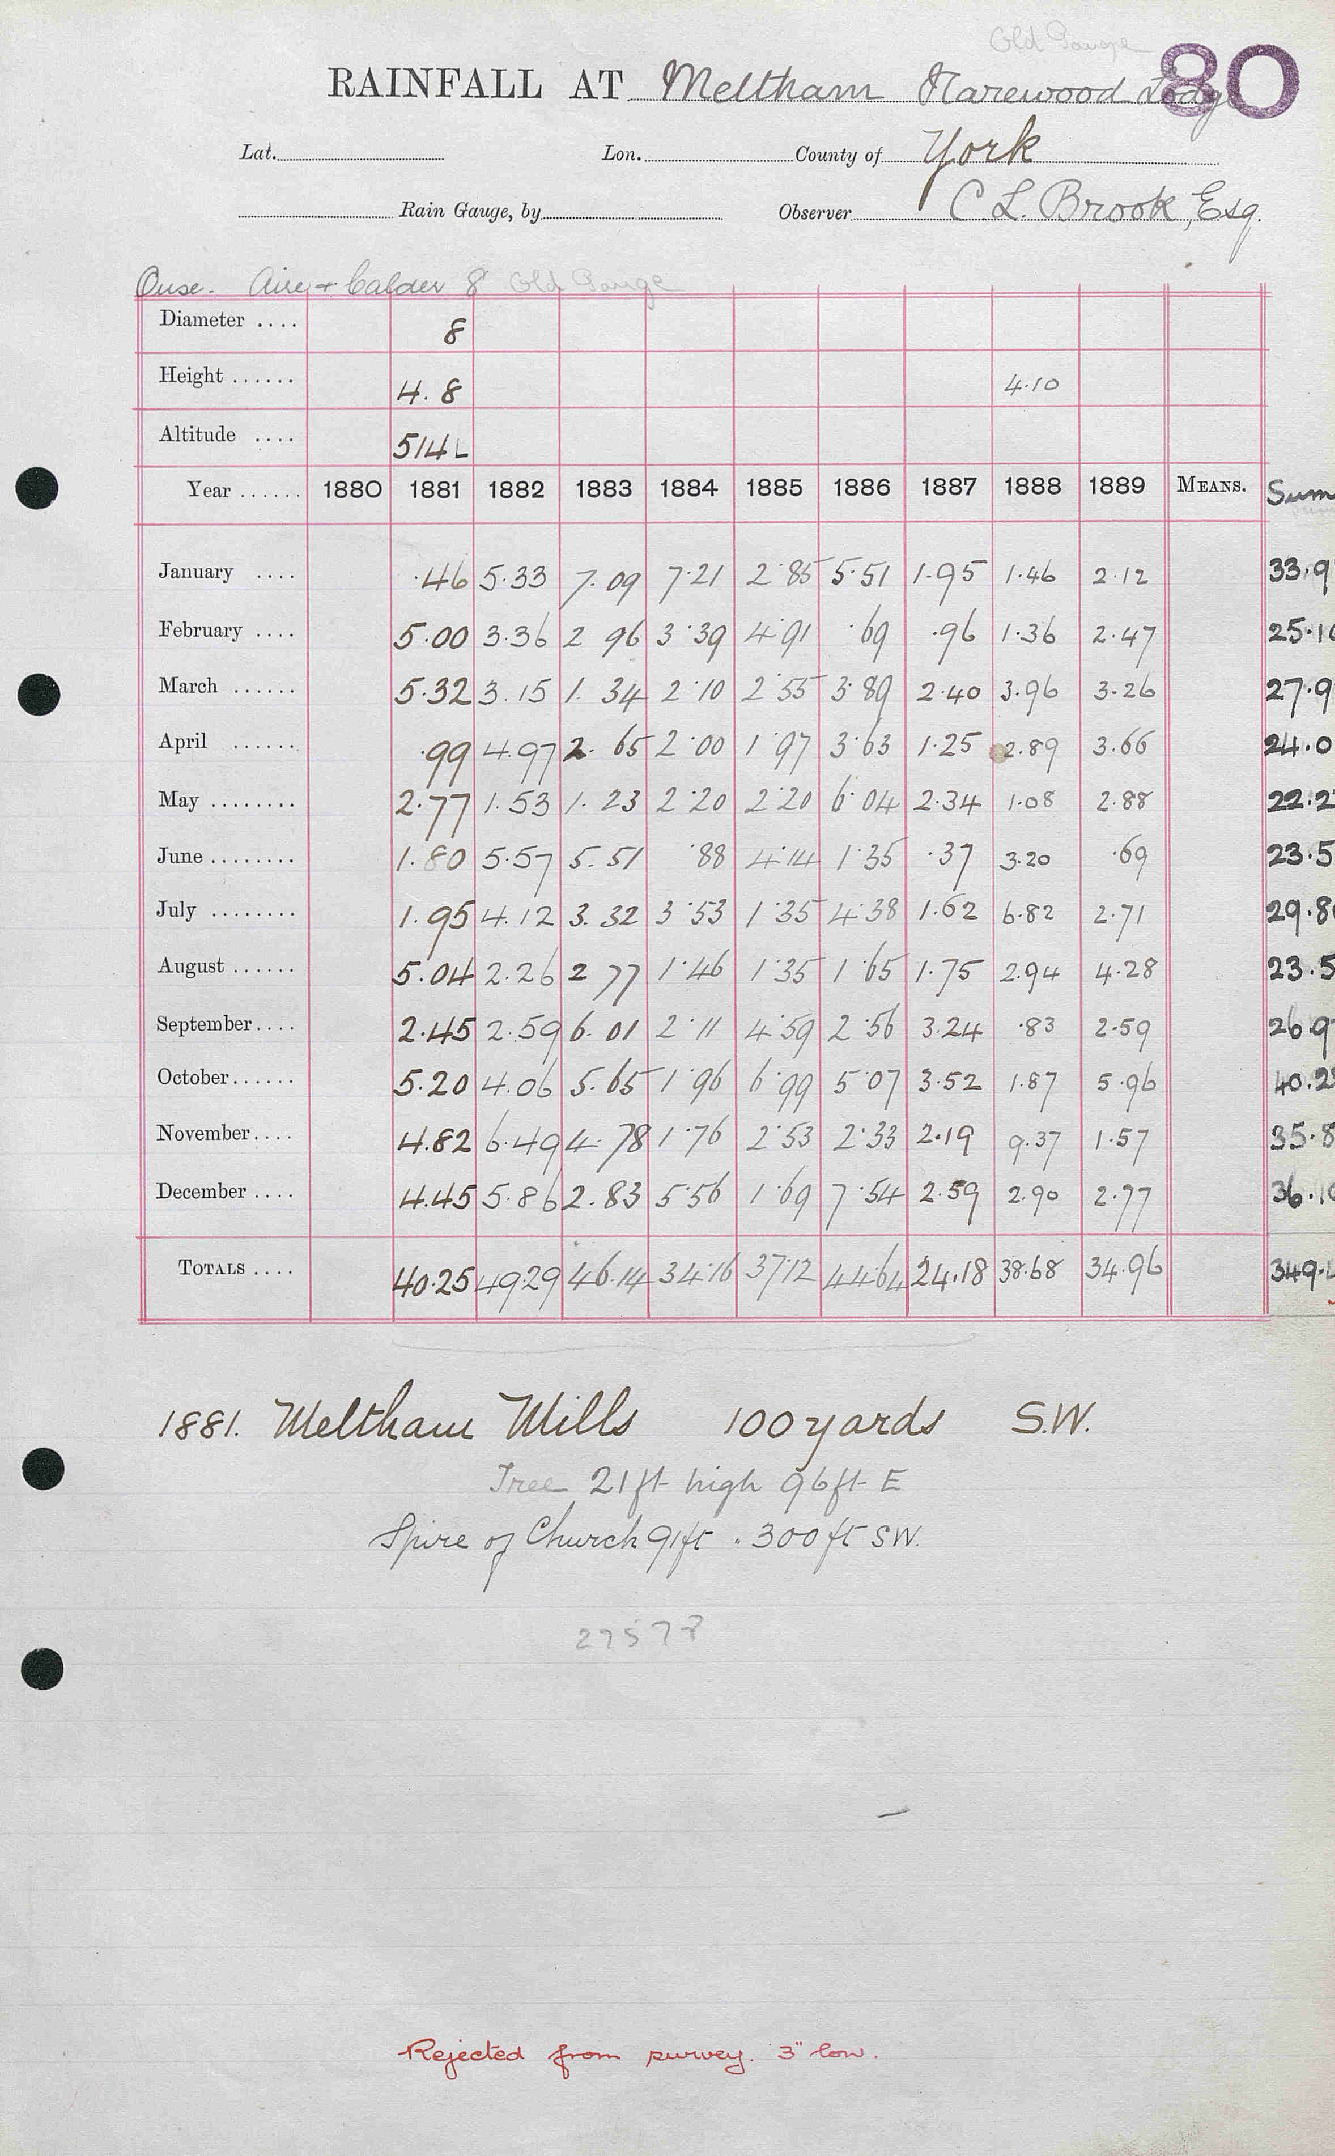 Old Gauge
80
RAINFALL AT Meltham Harewood Lodge
Lat. Lon. County of York
Rain Gauge, by Observer C L. Brook, Esq.
Ouse. Aire + Calder 8 Old Gauge
Diameter .... 8
Height ...... 4.8 4.10
Altitude .... 514 L
Year ...... 1880 1881 1882 1883 1884 1885 1886 1887 1888 1889 MEANS. Sum
January .... .46 5.33 7.09 7.21 2.85 5.51 1.95 1.46 2.12 33.9
February .... 5.00 3.36 2 96 3.39 4.91 .69 .96 1.36 2.47 25.10
March ...... 5.32 3.15 1.34 2.10 2.55 3.89 2.40 3.96 3.26 27.9
April ...... .99 4.97 2.65 2.00 1.97 3.63 1.25 2.89 3.66 24.0
May ........ 2.77 1.53 1.23 2.20 2.20 6.04 2.34 1.08 2.88 22.2
June ........ 1.80 5.57 5.51 .88 4.14 1.35 .37 3.20 .69 23.5
July ........ 1.95 4.12 3.32 3.53 1.35 4.38 1.62 6.82 2.71 29.80
August ...... 5.04 2.26 2 77 1.46 1.35 1.65 1.75 2.94 4.28 23.5
September .... 2.45 2.59 6.01 2.11 4.59 2.56 3.24 .83 2.59 26.9
October ...... 5.20 4.06 5.65 1.96 6.99 5.07 3.52 1.87 5.96 40.2
November .... 4.82 6.49 4.78 1.76 2.53 2.33 2.19 9.37 1.57 35.8
December .... 4.45 5.86 2.83 5.56 1.69 7.54 2.59 2.90 2.77 36.10
TOTALS .... 40.25 49.29 46.14 34.16 37.12 44.64 24.18 38.68 34.96 349.
1881. Meltham Mills 100 yards S.W.
Tree 21 ft high 96 ft E
Spire of Church 91 ft . 300 ft SW.
27578
Rejected from survey. 3" low.